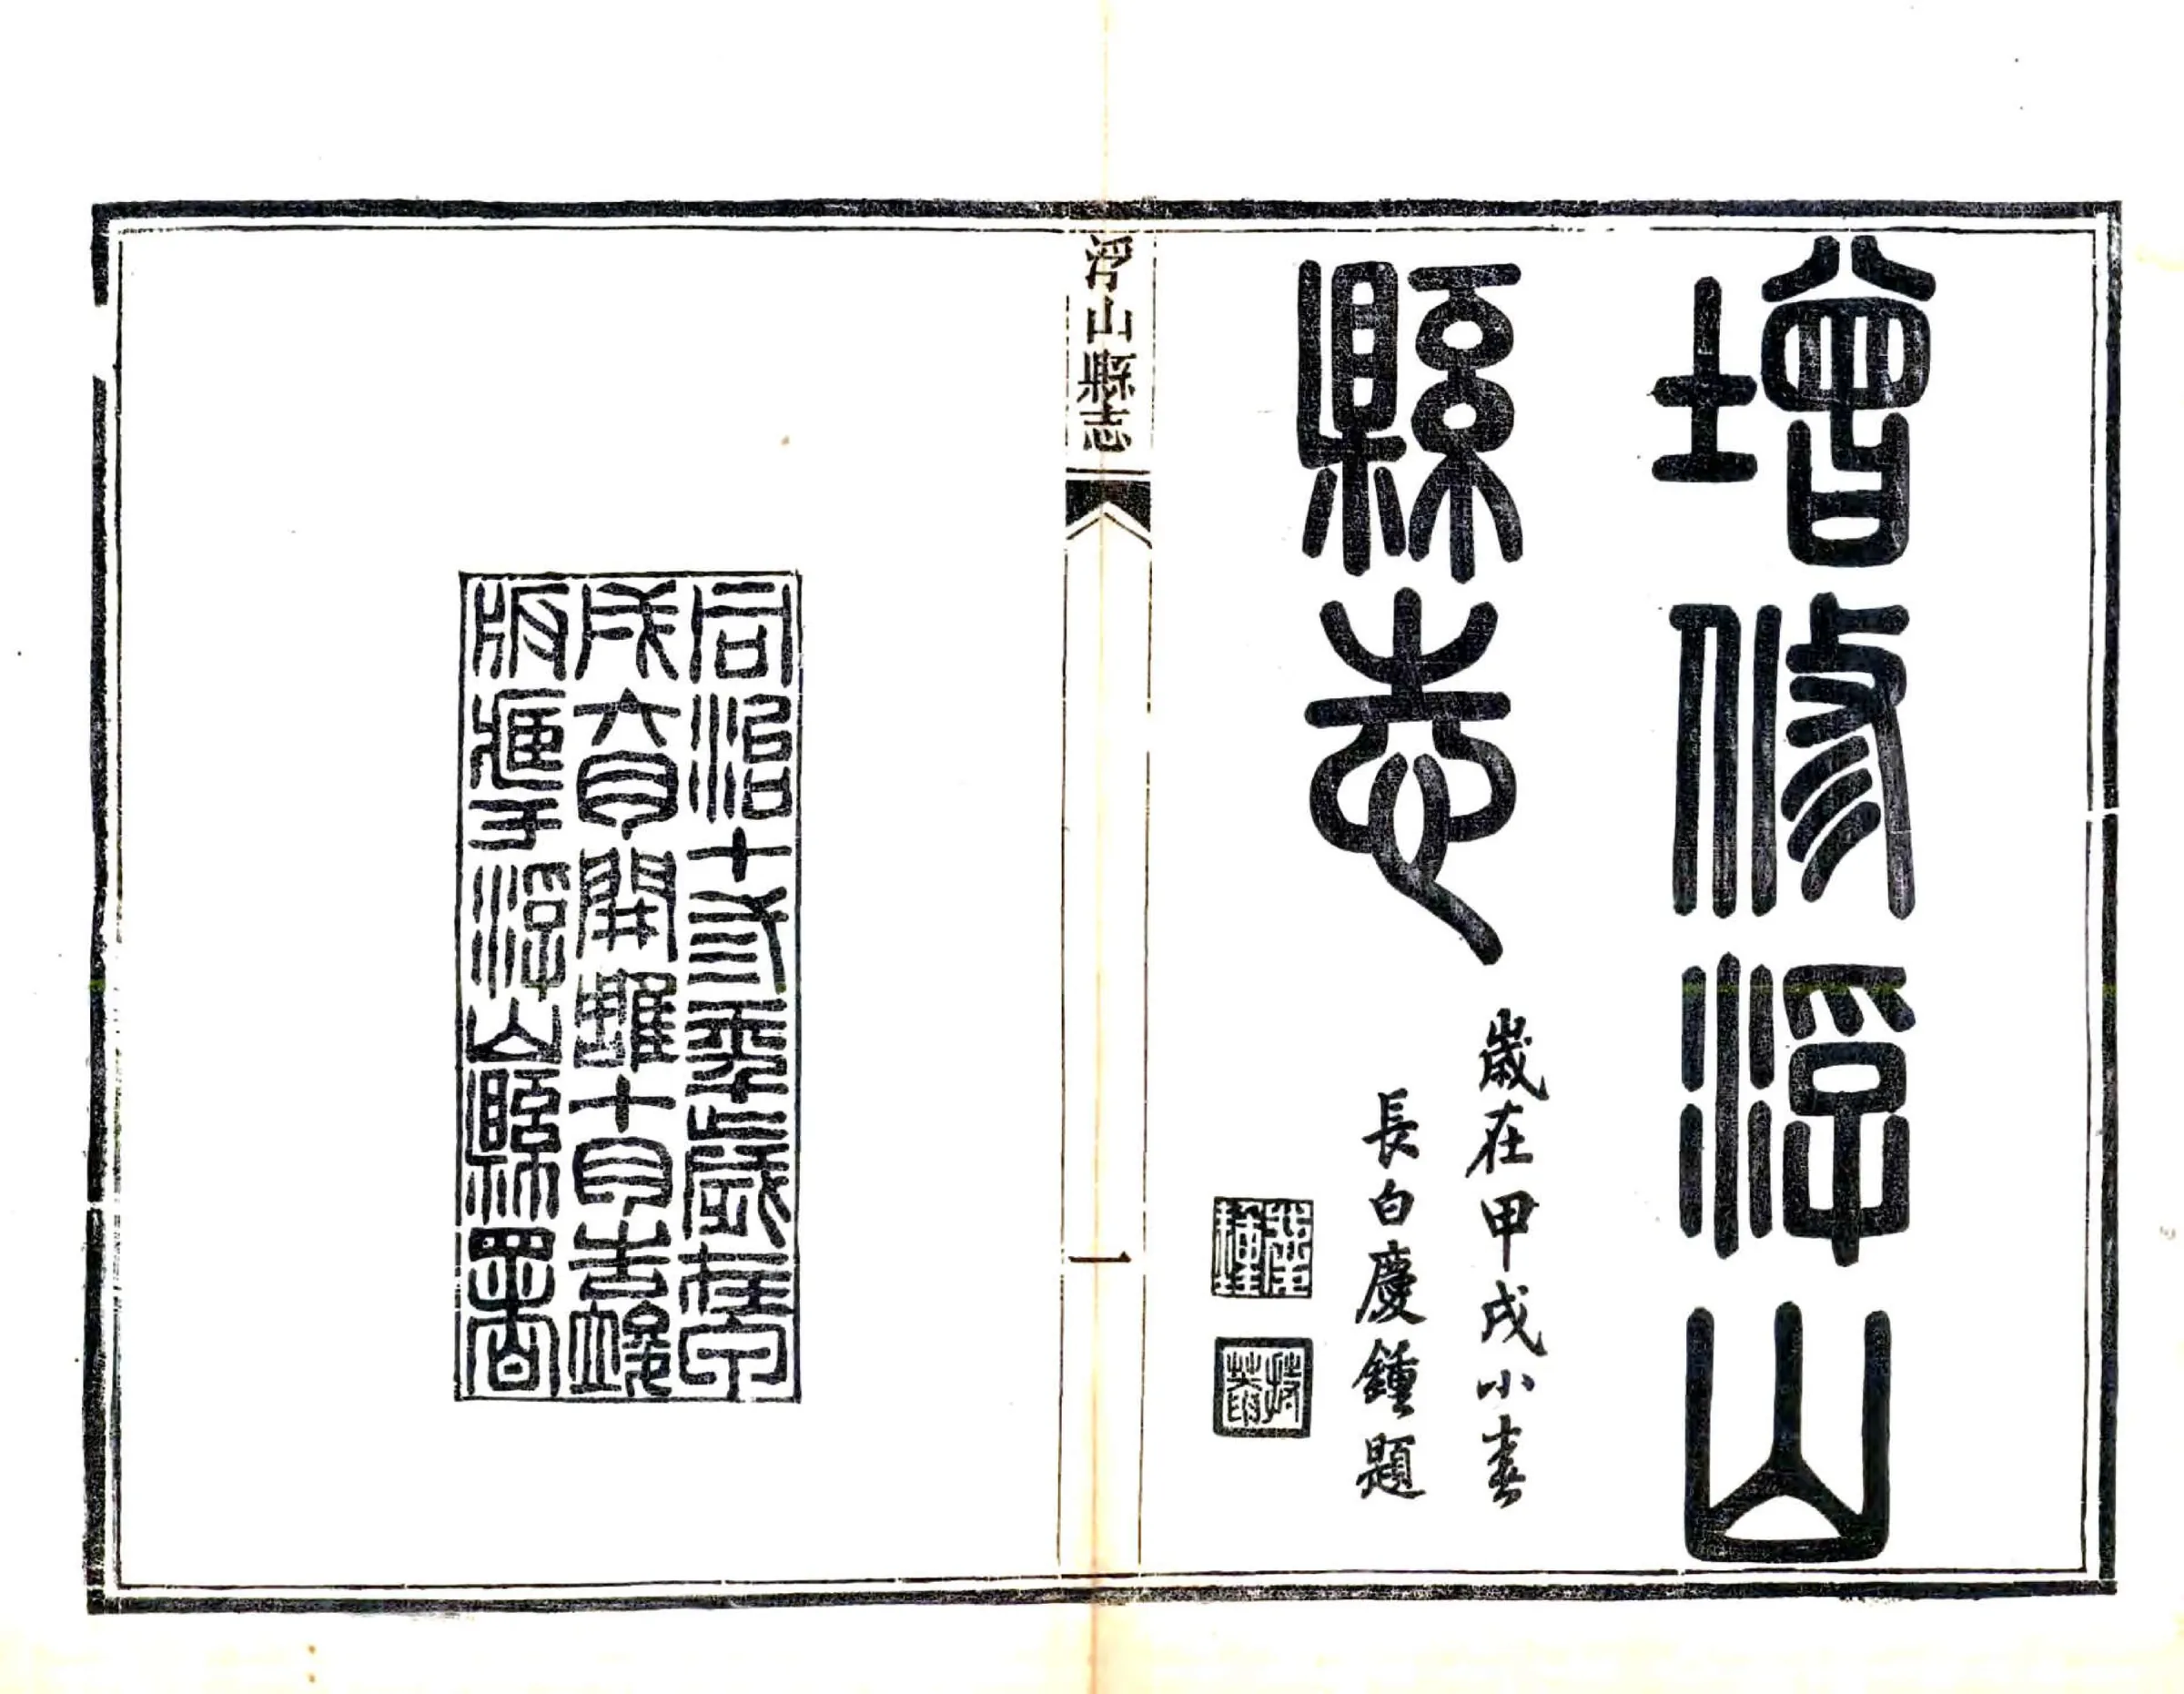 增修浮山
縣志
歲在甲戌小春
長白慶鍾題
浮山縣志
一
同治十弎年歲在甲
戌六月開雕十月告竣
版藏于浮山縣署